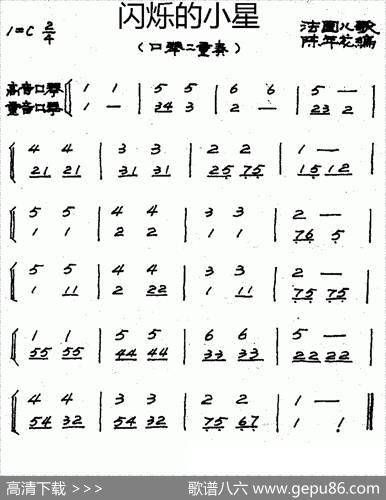 闪烁的小星
1=C 2/4
（口琴二重奏）
法国儿歌
陈年花编
高音口琴 1 1 | 5 5 | 6 6 | 5 — |
重音口琴 1 — | 34 3 | 2 — | 23 2 |
4 4 | 3 3 | 2 2 | 1 — |
21 21 | 31 31 | 25 75 | 15 12 |
5 5 | 4 4 | 3 3 | 2 — |
1 1 | 2 2 | 1 1 | 76 5 |
5 5 | 4 4 | 3 3 | 2 — |
1 11 | 2 22 | 1 11 | 75 75 |
1 1 | 5 5 | 6 6 | 5 — |
55 55 | 44 44 | 33 33 | 22 22 |
4 4 | 3 3 | 2 2 | 1 — |
54 32 | 54 32 | 75 67 | 1 1 |
高清下载 >>>
歌谱八六 www.gepu86.com